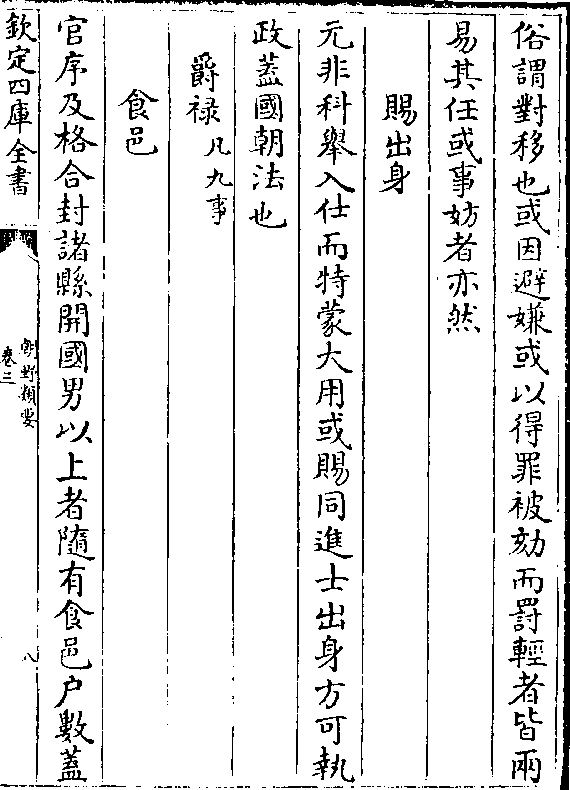 俗謂對移也或因避嫌或以得罪被劾而罰輕者皆兩
易其任或事妨者亦然
賜出身
元非科舉入仕而特蒙大用或賜同進士出身方可執
政蓋國朝法也
爵禄凡九事
食邑
官序及格合封諸縣開國男以上者隨有食邑户數蓋
欽定四庫全書
朝野類要
卷三
八